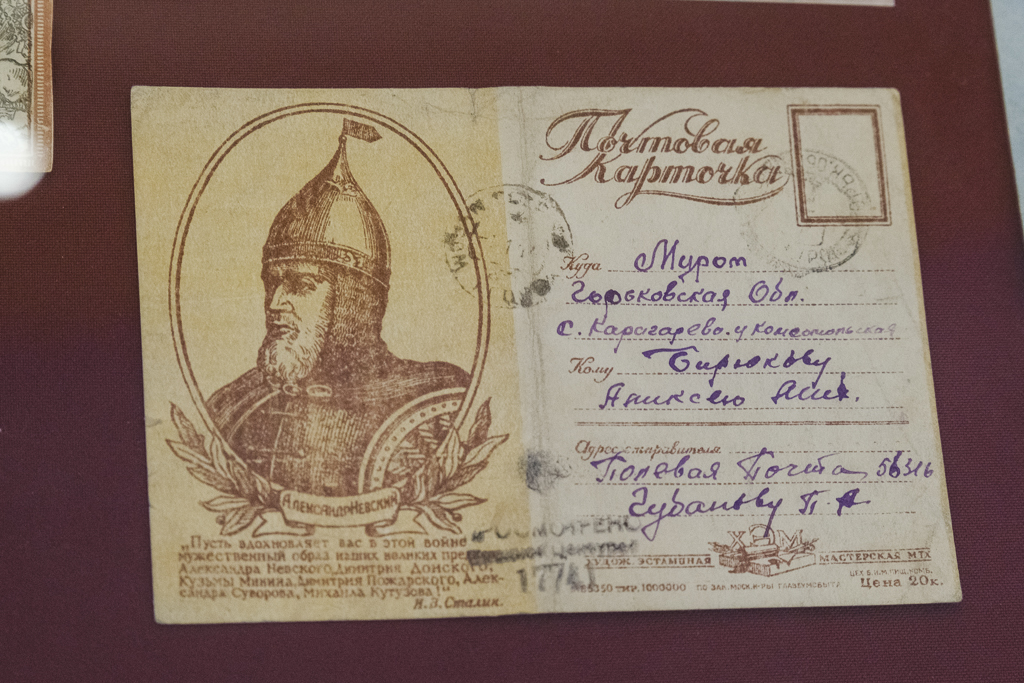 Александр Невский
„Пусть вдохновляет вас в этой войне
мужественный образ наших великих пре
Александра Невского, Димитрия Донского,
Кузьмы Минина, Димитрия Пожарского, Алек-
сандра Суворова, Михаила Кутузова!"
И. В. Сталин.
Почтовая
Карточка
Куда Муром
Горьковская Обл.
с. Карачарево. у Комсомольская
Кому Бирюкову
Аликсею
Адрес отправителя
Полевая Почта 56316
Губанову П. А
ПРОСМОТРЕНО
Военной Цензурой
17741
ХЭМ
ХУДОЖ. ЭСТАМПНАЯ МАСТЕРСКАЯ МТХ
Цена 20к.
ТИР. 1000000 ПО ЗАК. МОСК.